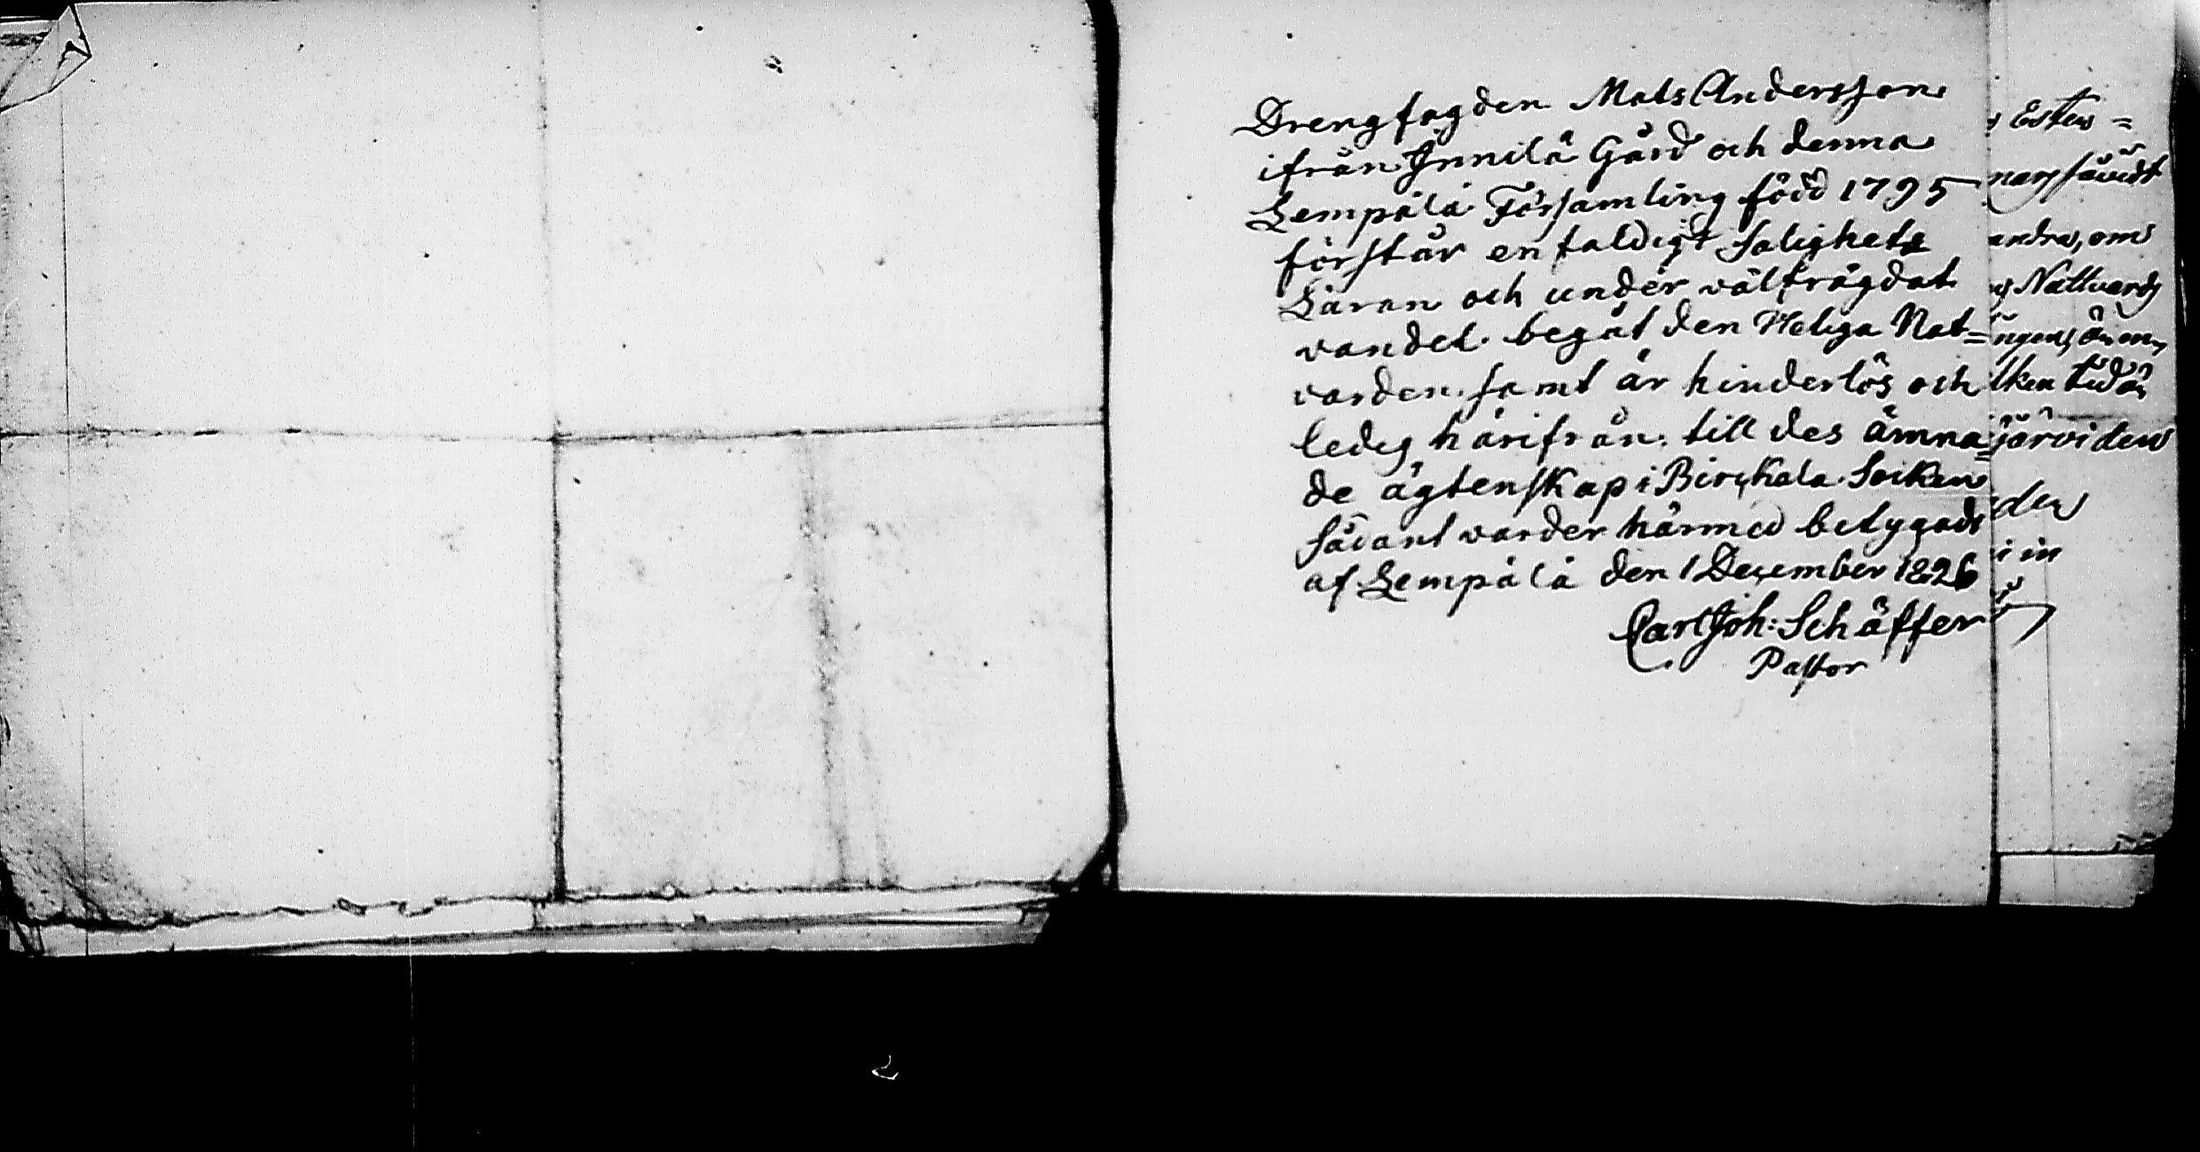 Drengfogden Mats Andersson
ifrån Innilä Gård och denna
Lempälä Församling född 1795
förstår enfaldigt Salighets
Läran och under välfrägdat
vandel begåt den Heliga Nat=
varden samt är hinderlös och
ledig härifrån till des ämna=
de ägtenskap i Birckala Socken
sådant varder härmed betygadt
af Lempälä den 1 December 1826
Carl Joh: Schäffer
Pastor
andra, om
Nattvards
den
in